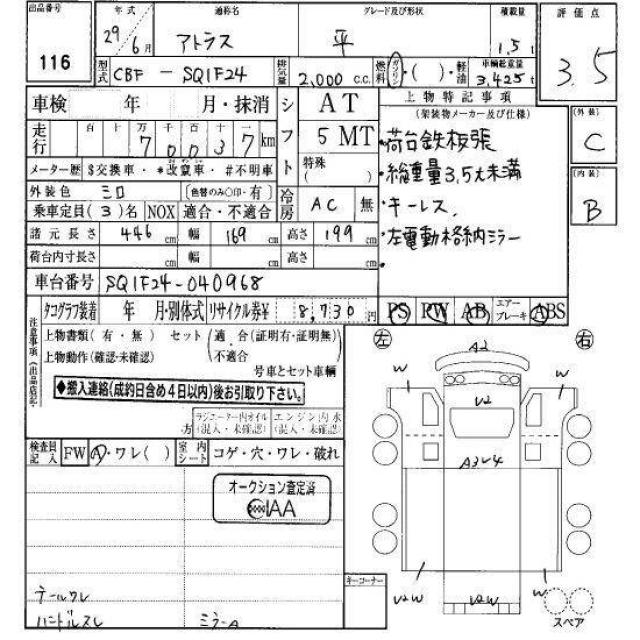 出品番号 116
年式 29年6月
通称名 アトラス
グレード及び形状 平
積載量 1.5t
評価点 3.5
型式 CBF - SQ1F24
排気量 2,000 c.c.
燃料 ガソリン・( )・軽油
車輌総重量 3,425t
車検 年 月・抹消
シフト AT 5 MT
特殊 ( )
走行 百 十 万 千 百 十 km
7 0 0 3 7
メーター歴 $交換車・*改竄車・#不明車
外装色 シロ (色替のみ○印・有)
乗車定員(3)名 NOX 適合・不適合
冷房 AC 無
諸元長さ 446cm 幅 169cm 高さ 199cm
荷台内寸長さ cm 幅 cm 高さ cm
車台番号 SQ1F24-040968
タコグラフ装着 年 月・別体式 リサイクル券¥ 8,730円
上物特記事項
(架装物メーカー及び仕様)
・荷台鉄板張
・総重量3.5t未満
・キーレス、
・左電動格納ミラー
・
PS PW AB エアーブレーキ ABS
(外装) C
(内装) B
注意事項(出品店記)
上物書類(有・無) セット(適合(証明有・証明無)
上物動作(確認・未確認) 不適合
号車とセット車輌
◆搬入連絡(成約日含め4日以内)後お引取り下さい。
ラジエーター内オイル(混入・未確認)
エンジン内水(混入・未確認)
方
検査員記入 FW A・ワレ( )
室内シート コゲ・穴・ワレ・破れ
オークション査定済
IAA
テールワレ
ハンドルスレ
ミラーA
キーコーナー
左 右
A2
W W
V2
A3 V4
V2W V2W W
スペア